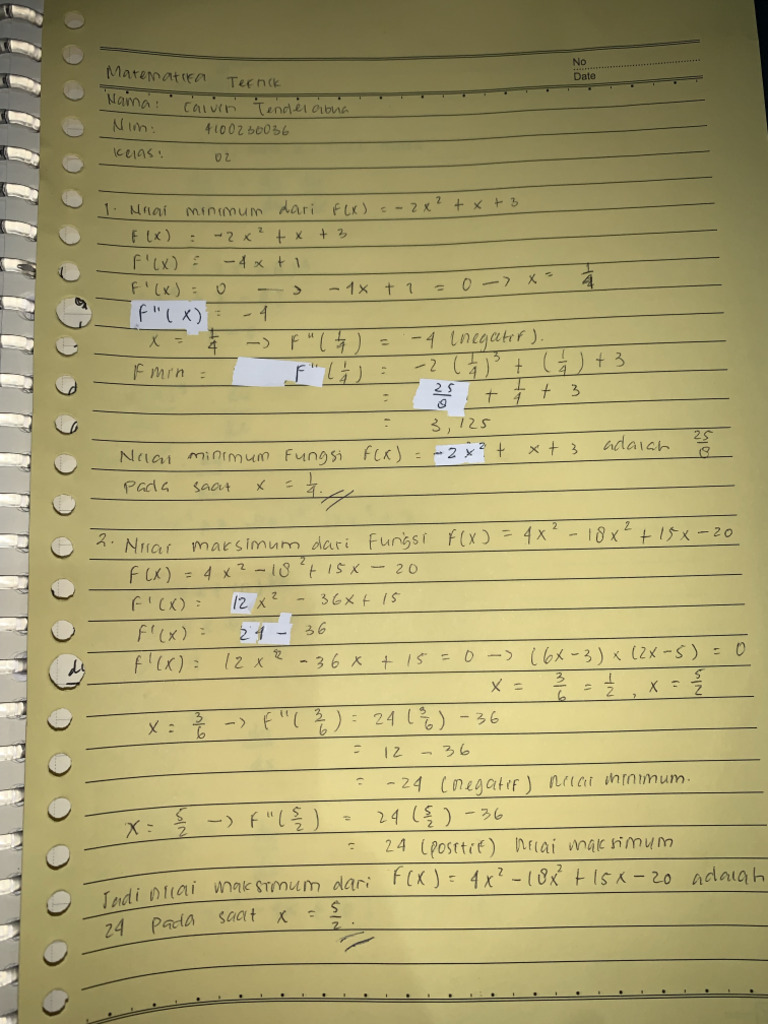 No
Date
Matematika Teknik
Nama: Calvin
Nim: 4100230036
Kelas: 02
1. Nilai minimum dari f(x) = -2x² + x + 3
f(x) = -2x² + x + 3
f'(x) = -4x + 1
f'(x) = 0 → -4x + 1 = 0 → x = 1/4
f"(x) = -4
x = 1/4 → f"(1/4) = -4 (negatif).
F min = F"(1/4) = -2(1/4)³ + (1/4) + 3
= 25/8 + 1/4 + 3
= 3,125
Nilai minimum fungsi f(x) = -2x² + x + 3 adalah 25/8
pada saat x = 1/4.
2. Nilai maksimum dari Fungsi f(x) = 4x² - 18x² + 15x - 20
f(x) = 4x² - 18² + 15x - 20
f'(x) = 12x² - 36x + 15
f'(x) = 24 - 36
f'(x) = 12x² - 36x + 15 = 0 → (6x - 3) × (2x - 5) = 0
x = 3/6 = 1/2, x = 5/2
x = 3/6 → f"(3/6) = 24(3/6) - 36
= 12 - 36
= -24 (negatif) nilai minimum.
x = 5/2 → f"(5/2) = 24(5/2) - 36
= 24 (positif) nilai maksimum
Jadi nilai maksimum dari f(x) = 4x² - 18x² + 15x - 20 adalah
24 pada saat x = 5/2.